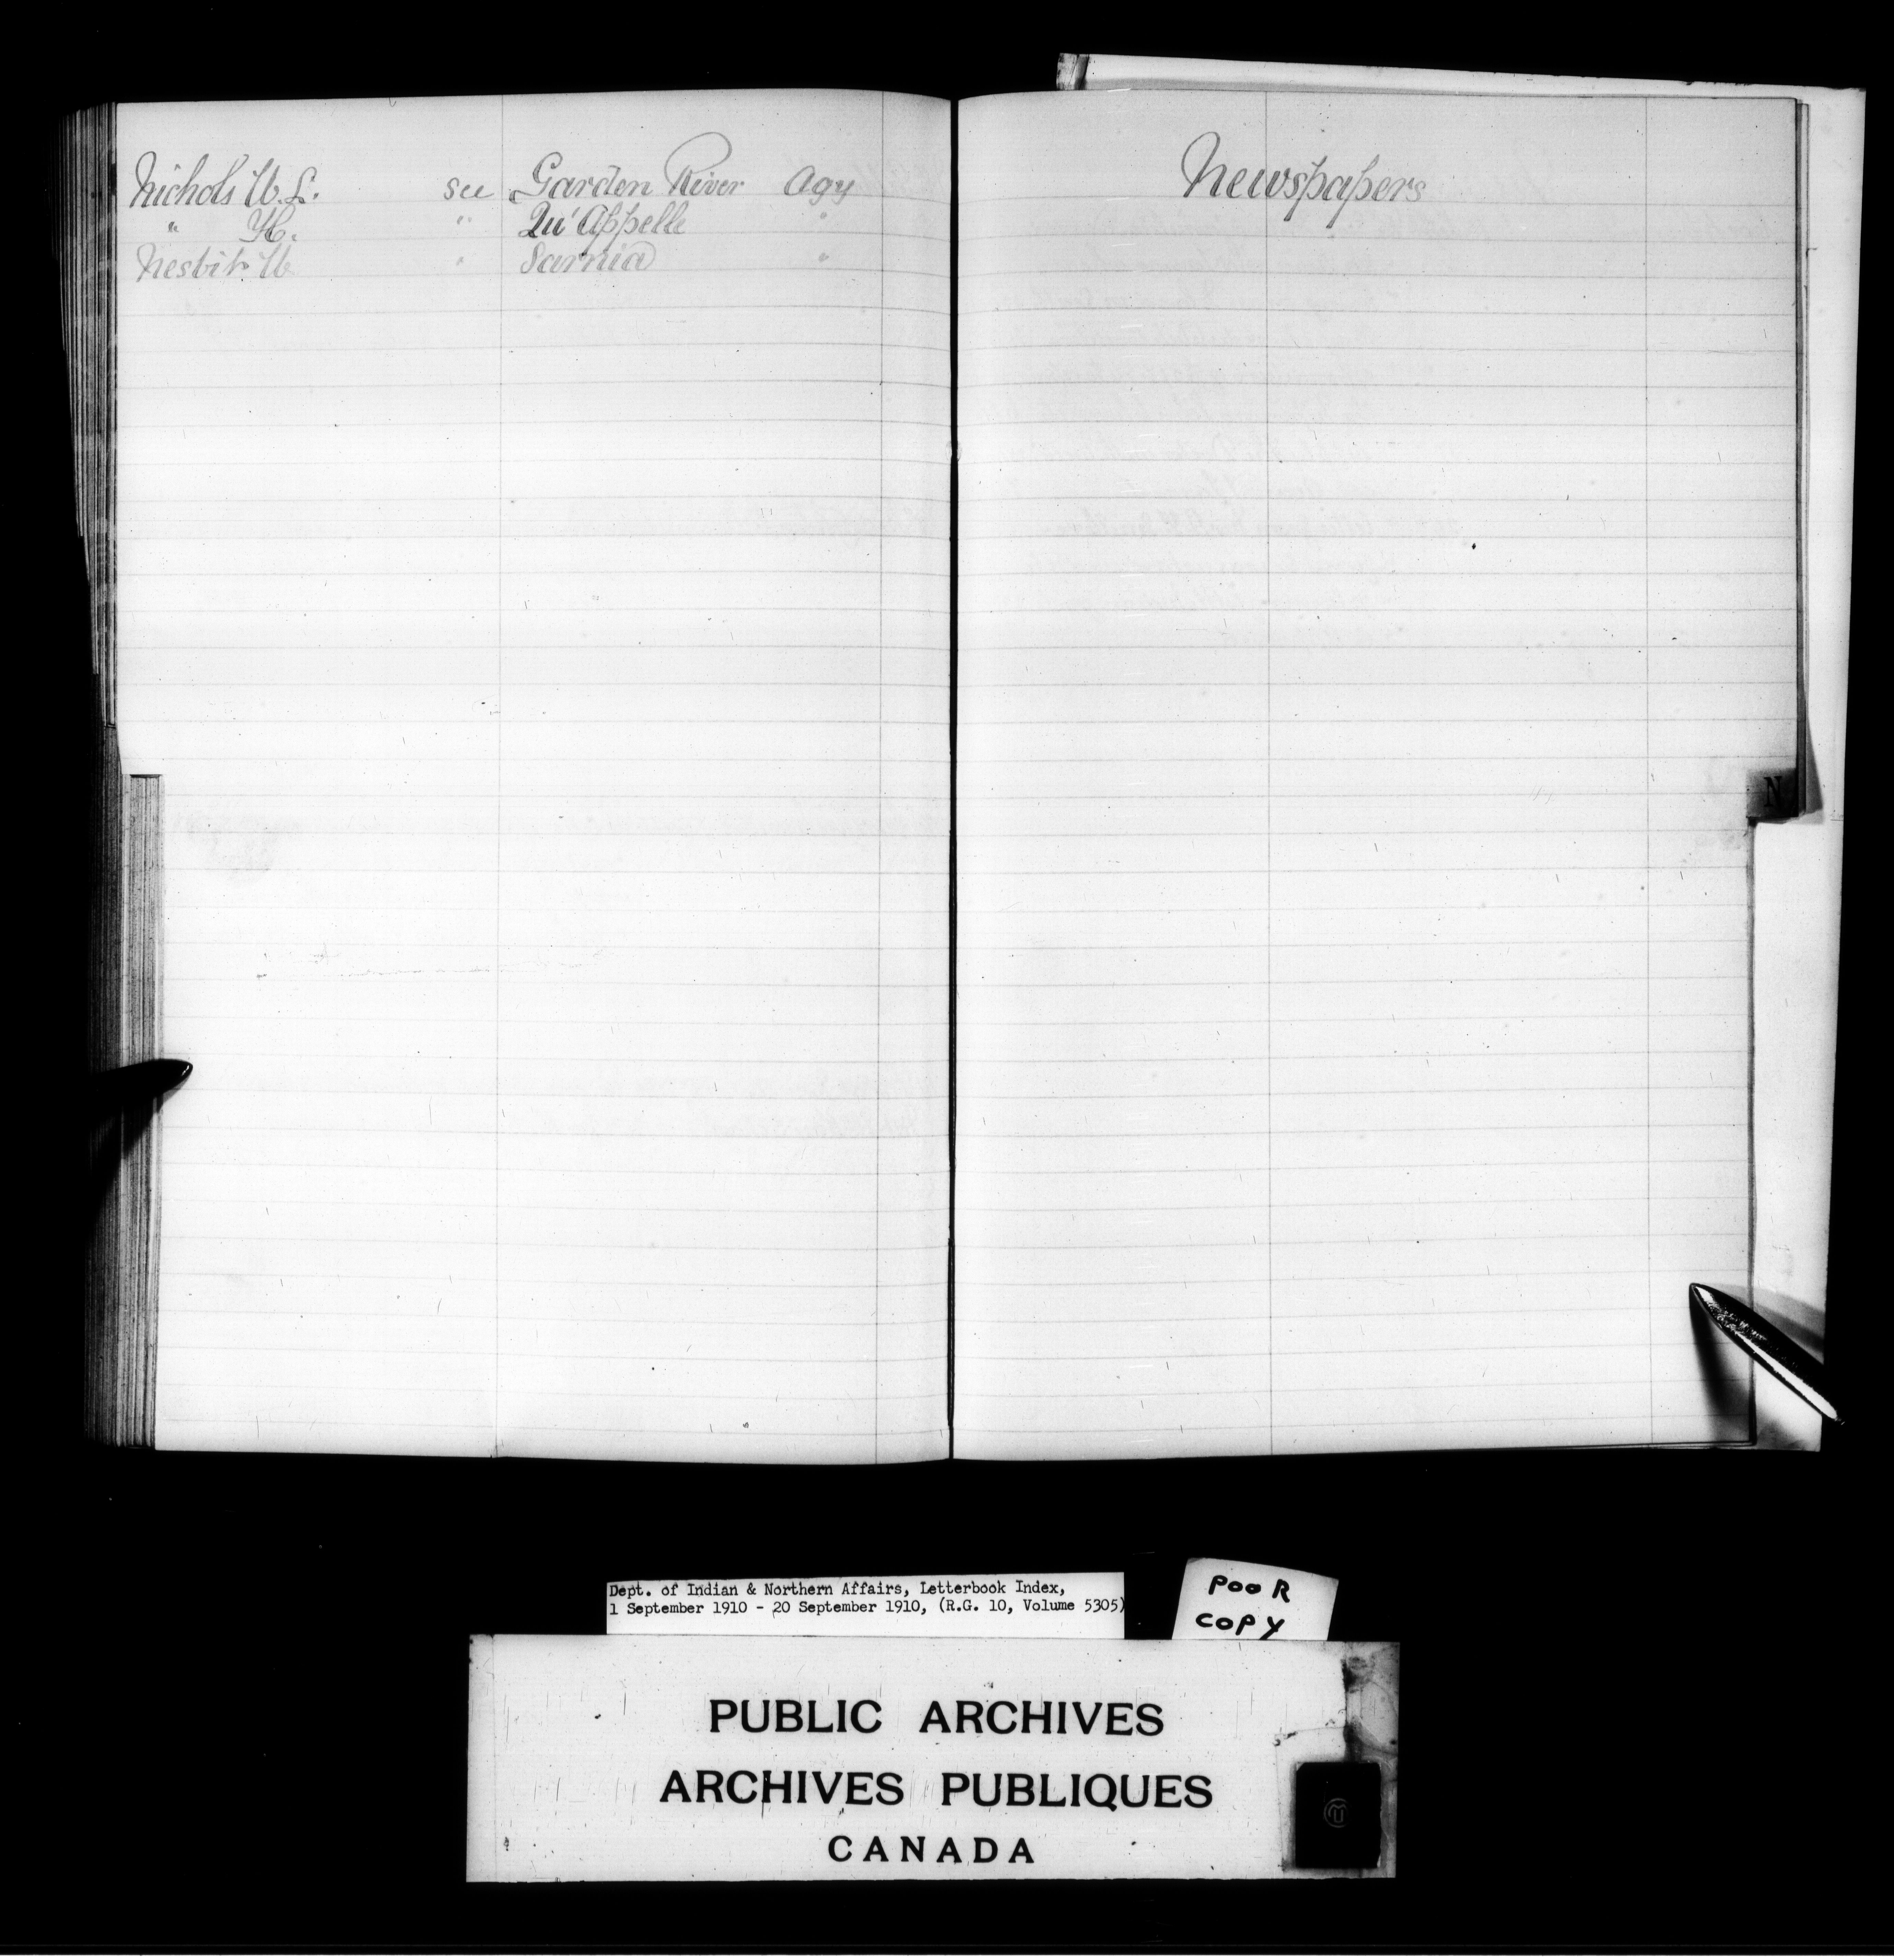 Nichols W. L. see Garden River Agy
" H. " Qu'Appelle "
Nesbit W " Sarnia "
Newspapers
N
Dept. of Indian & Northern Affairs, Letterbook Index,
1 September 1910 - 20 September 1910, (R.G. 10, Volume 5305)
POOR
COPY
PUBLIC ARCHIVES
ARCHIVES PUBLIQUES
CANADA